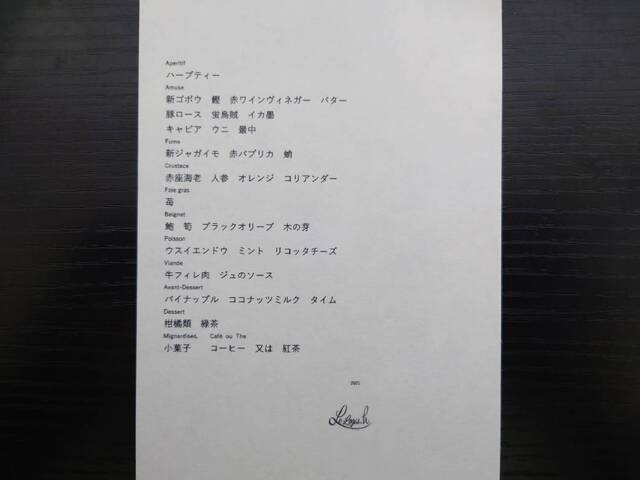 Aperitif
ハーブティー
Amuse
新ゴボウ　鰹　赤ワインヴィネガー　バター
豚ロース　蛍烏賊　イカ墨
キャビア　ウニ　最中
Fume
新ジャガイモ　赤パプリカ　蛸
Crustace
赤座海老　人参　オレンジ　コリアンダー
Foie gras
苺
Beignet
鮑　筍　ブラックオリーブ　木の芽
Poisson
ウスイエンドウ　ミント　リコッタチーズ
Viande
牛フィレ肉　ジュのソース
Avant-Dessert
パイナップル　ココナッツミルク　タイム
Dessert
柑橘類　緑茶
Mignardises,　Café ou The
小菓子　コーヒー　又は　紅茶
2021